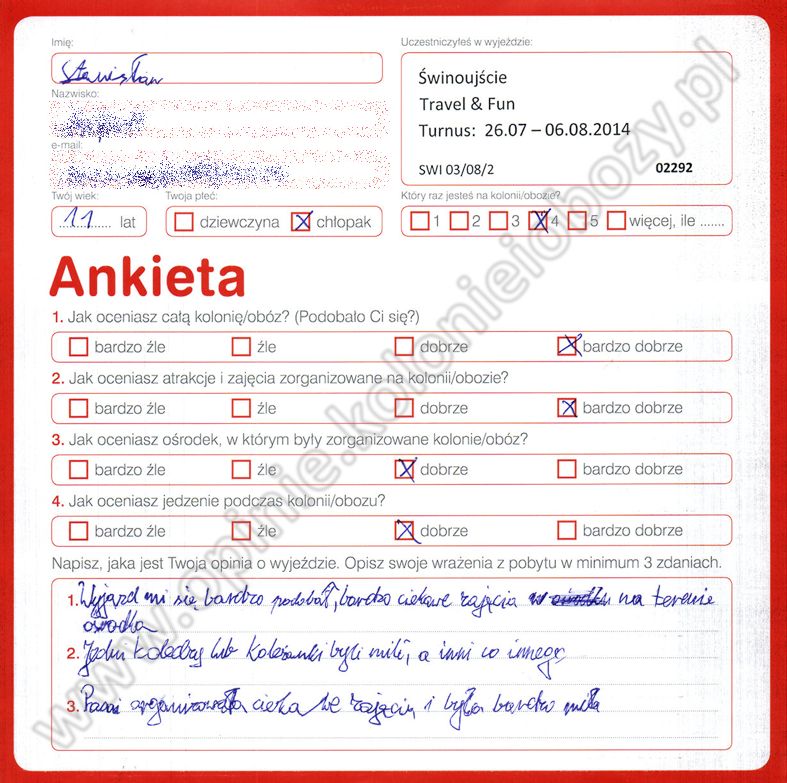 Imię:
Stanisław
Uczestniczyłeś w wyjeździe:
Świnoujście
Travel & Fun
Turnus: 26.07 – 06.08.2014
SWI 03/08/2 02292
Nazwisko:
e-mail:
Twój wiek:
11 lat
Twoja płeć:
dziewczyna chłopak
Który raz jesteś na kolonii/obozie?
1 2 3 4 5 więcej, ile .......
Ankieta
1. Jak oceniasz całą kolonię/obóz? (Podobało Ci się?)
bardzo źle źle dobrze bardzo dobrze
2. Jak oceniasz atrakcje i zajęcia zorganizowane na kolonii/obozie?
bardzo źle źle dobrze bardzo dobrze
3. Jak oceniasz ośrodek, w którym były zorganizowane kolonie/obóz?
bardzo źle źle dobrze bardzo dobrze
4. Jak oceniasz jedzenie podczas kolonii/obozu?
bardzo źle źle dobrze bardzo dobrze
Napisz, jaka jest Twoja opinia o wyjeździe. Opisz swoje wrażenia z pobytu w minimum 3 zdaniach.
1. Wyjazd mi się bardzo podobał, bardzo ciekawe zajęcia na terenie
ośrodka
2. Jedni koledzy lub koleżanki byli mili, a inni co innego
3. Pani organizowała ciekawe zajęcia i była bardzo miła
www.opinie.kolonieiobozy.pl